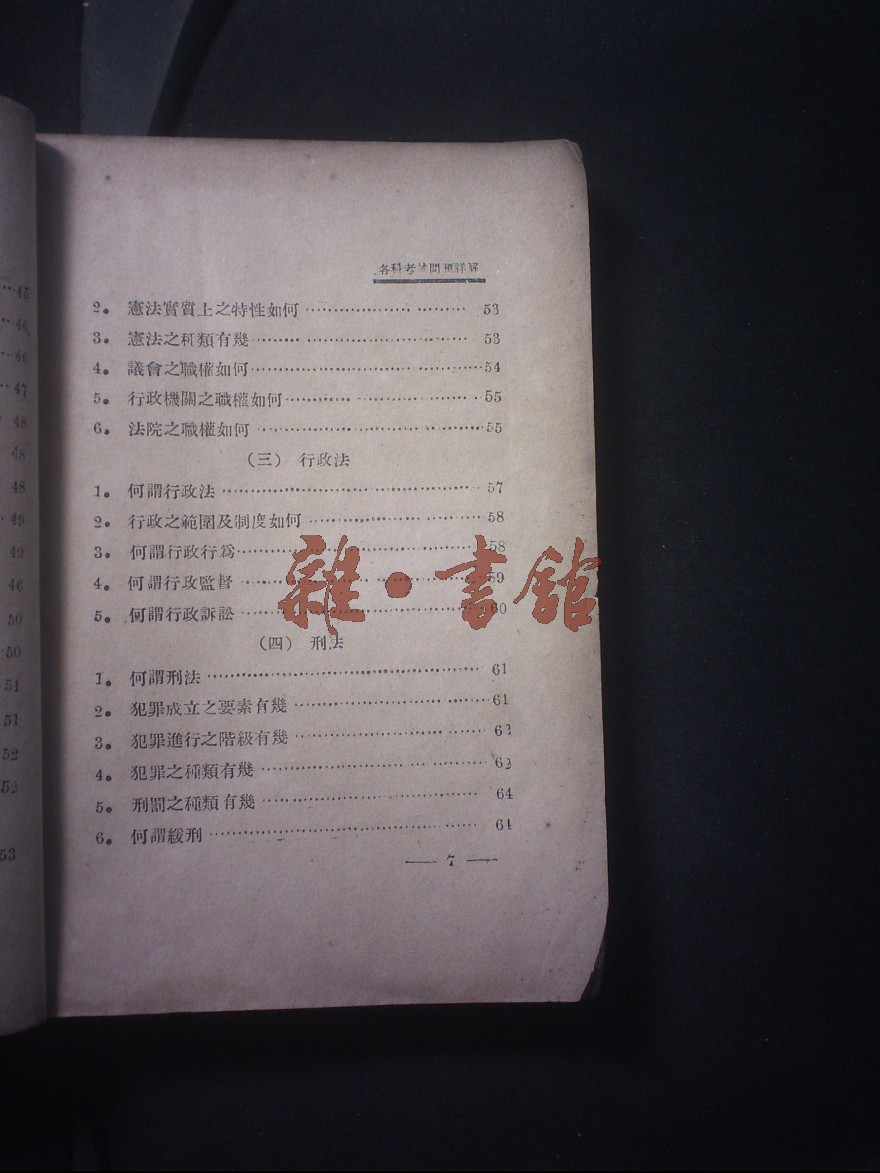 各科考試問題詳解
2. 憲法實質上之特性如何 53
3. 憲法之種類有幾 53
4. 議會之職權如何 54
5. 行政機關之職權如何 55
6. 法院之職權如何 55
（三） 行政法
1. 何謂行政法 57
2. 行政之範圍及制度如何 58
3. 何謂行政行爲 58
4. 何謂行政監督 59
5. 何謂行政訴訟 60
（四） 刑法
1. 何謂刑法 61
2. 犯罪成立之要素有幾 61
3. 犯罪進行之階級有幾
4. 犯罪之種類有幾 63
5. 刑罰之種類有幾 64
6. 何謂緩刑 64
— 7 —
45
46
46
47
48
48
48
49
49
46
50
50
51
51
52
52
53
雜·書館